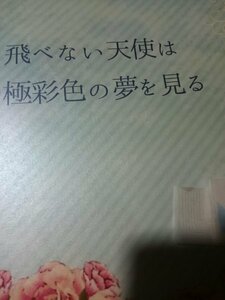 飛べない天使は
極彩色の夢を見る